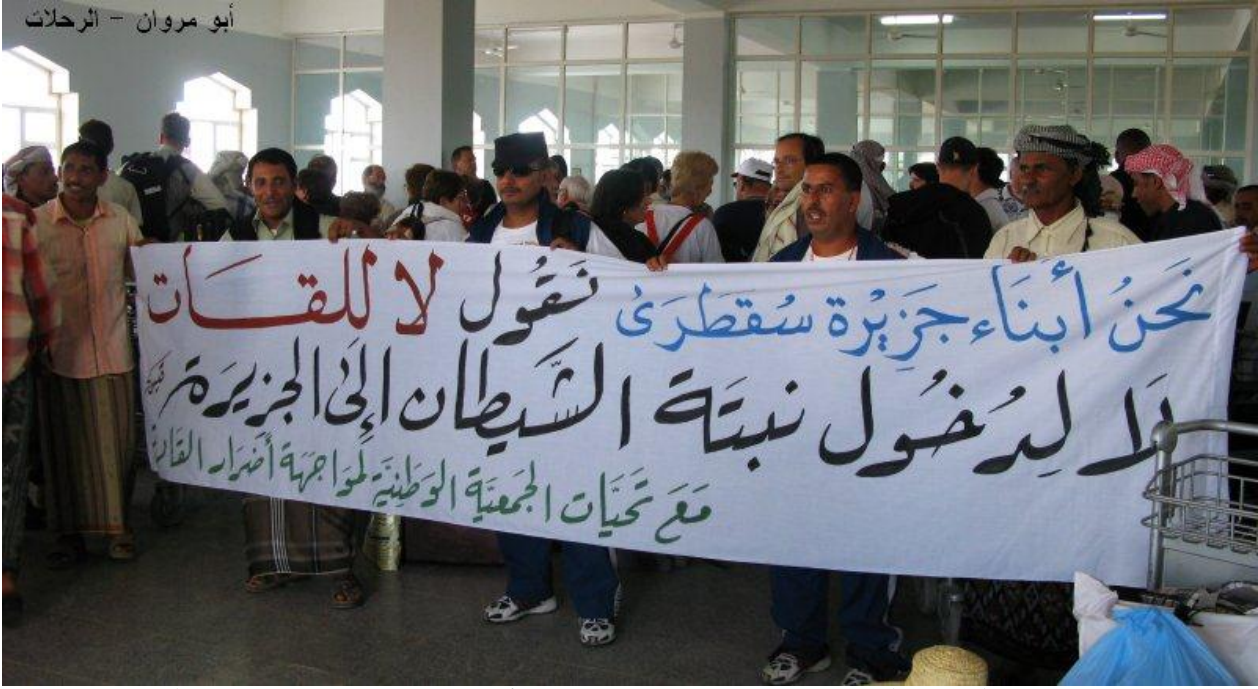 أبو مروان - الرحلات
نَحنُ أبنَاء جَزِيْرة سُقطَرَىٰ نَقُول لا للقـــات
لَا لِدُخُول نبتَة الشَّيطان إلَىٰ الجزيرَة
مَعَ تَحيَّات الجَمعيَّة الوَطنيَّة لمُوَاجهَة أضرَار القات